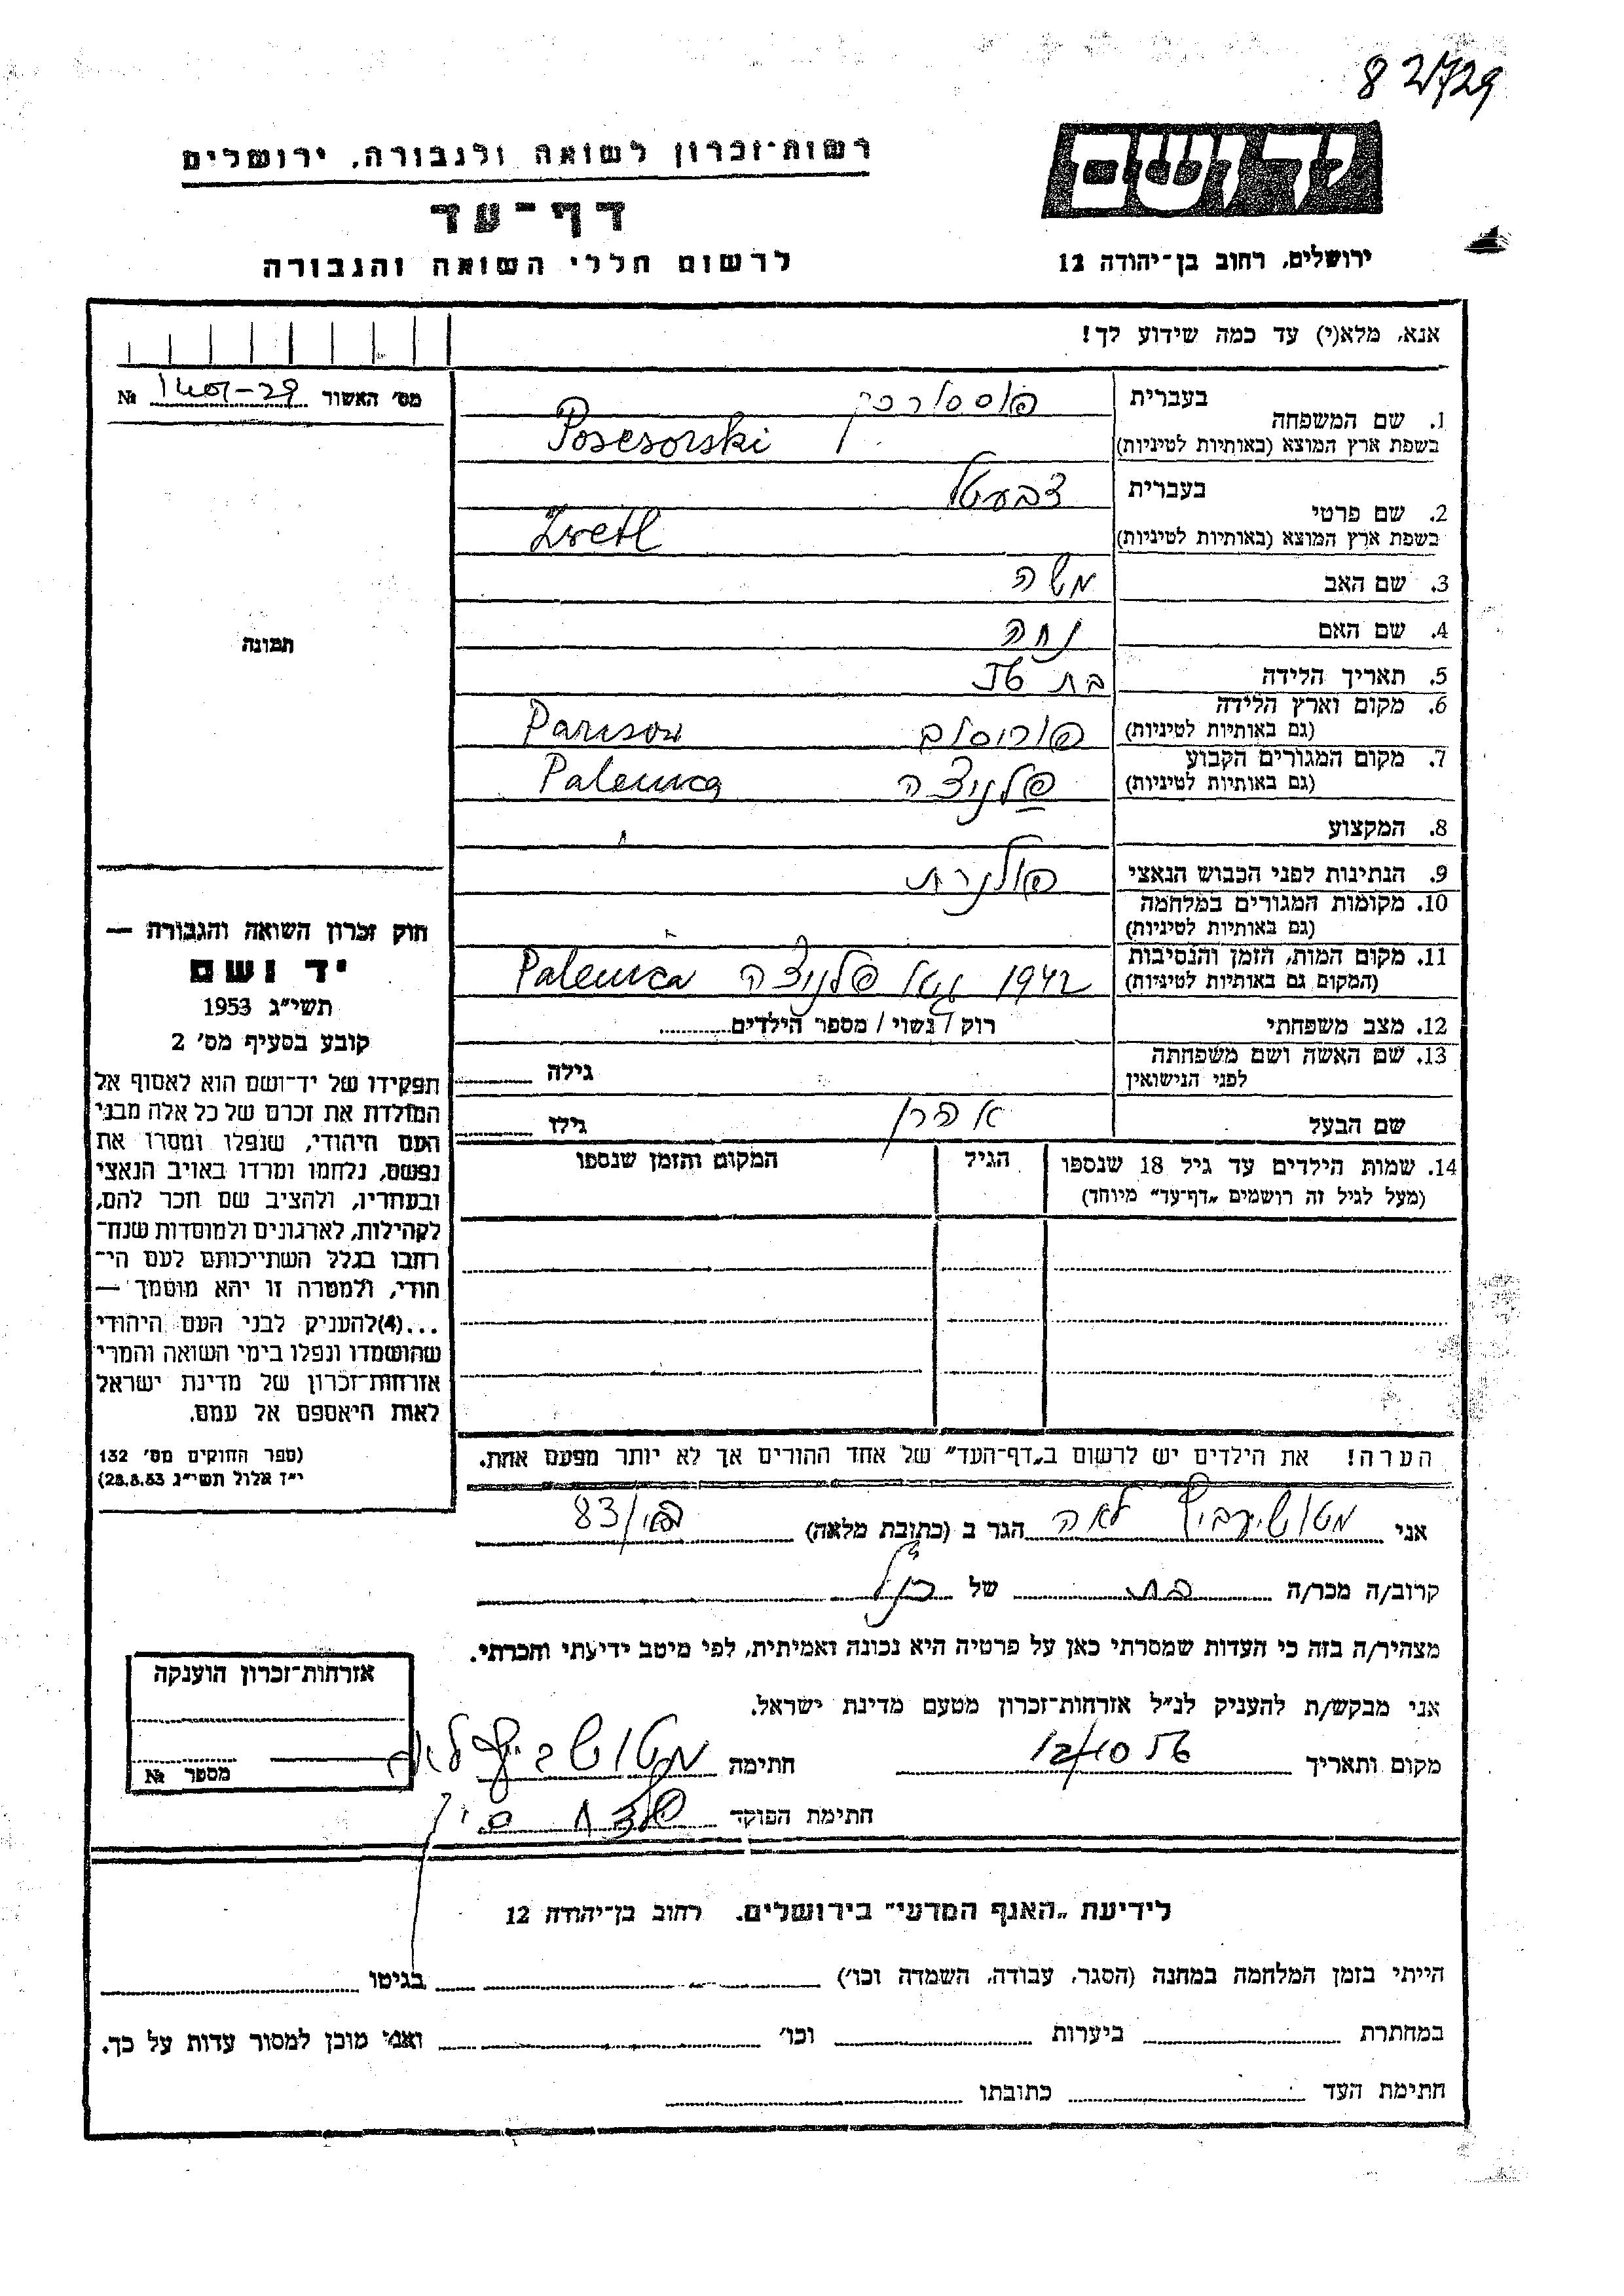 82/729
רשות־זכרון לשואה ולגבורה, ירושלים
דף־עד
לרשום חללי השואה והגבורה
יד ושם
ירושלים, רחוב בן־יהודה 12
אנא, מלא(י) עד כמה שידוע לך!
מס׳ האשור 29- №
תמונה
בעברית
1. שם המשפחה
בשפת ארץ המוצא (באותיות לטיניות) Posesorski
בעברית צבעטל
2. שם פרטי
בשפת ארץ המוצא (באותיות לטיניות) Zwetl
3. שם האב משה
4. שם האם נחה
5. תאריך הלידה בת
6. מקום וארץ הלידה
(גם באותיות לטיניות) פוריסוב Parisow
7. מקום המגורים הקבוע
(גם באותיות לטיניות) פלניצה Palenica
8. המקצוע
9. הנתינות לפני הכבוש הנאצי פולנית
10. מקומות המגורים במלחמה
(גם באותיות לטיניות)
11. מקום המות, הזמן והנסיבות
(המקום גם באותיות לטיניות) 1942 גטו פלניצה Palenica
12. מצב משפחתי רוק / נשוי / מספר הילדים
13. שם האשה ושם משפחתה
לפני הנישואין גילה
שם הבעל אהרן גילו
14. שמות הילדים עד גיל 18 שנספו הגיל המקום והזמן שנספו
(מעל לגיל זה רושמים „דף־עד” מיוחד)
הערה! את הילדים יש לרשום ב„דף־העד” של אחד ההורים אך לא יותר מפעם אחת.
חוק זכרון השואה והגבורה —
יד ושם
תשי״ג 1953
קובע בסעיף מס׳ 2
תפקידו של יד־ושם הוא לאסוף אל
המולדת את זכרם של כל אלה מבני
העם היהודי, שנפלו ומסרו את
נפשם, נלחמו ומרדו באויב הנאצי
ובעוזריו, ולהציב שם וזכר להם,
לקהילות, לארגונים ולמוסדות שנח־
רבו בגלל השתייכותם לעם הי־
הודי, ולמטרה זו יהא מוסמך —
...(4) להעניק לבני העם היהודי
שהושמדו ונפלו בימי השואה והמרי
אזרחות־זכרון של מדינת ישראל
לאות היאספם אל עמם.
(ספר החוקים מס׳ 132
י״ז אלול תשי״ג 28.8.53)
אני לאה הגר ב (כתובת מלאה) 83/
קרוב/ה מכר/ה בת של הנ״ל
מצהיר/ה בזה כי העדות שמסרתי כאן על פרטיה היא נכונה ואמיתית, לפי מיטב ידיעתי והכרתי.
אני מבקש/ת להעניק לנ״ל אזרחות־זכרון מטעם מדינת ישראל.
מקום ותאריך 12/10 חתימה
חתימת הפוקד
אזרחות־זכרון הוענקה
מספר №
לידיעת „האגף המדעי” בירושלים. רחוב בן־יהודה 12
הייתי בזמן המלחמה במחנה (הסגר, עבודה, השמדה וכו׳) בגיטו
במחתרת ביערות וכו׳ ואני מוכן למסור עדות על כך.
חתימת העד כתובתו